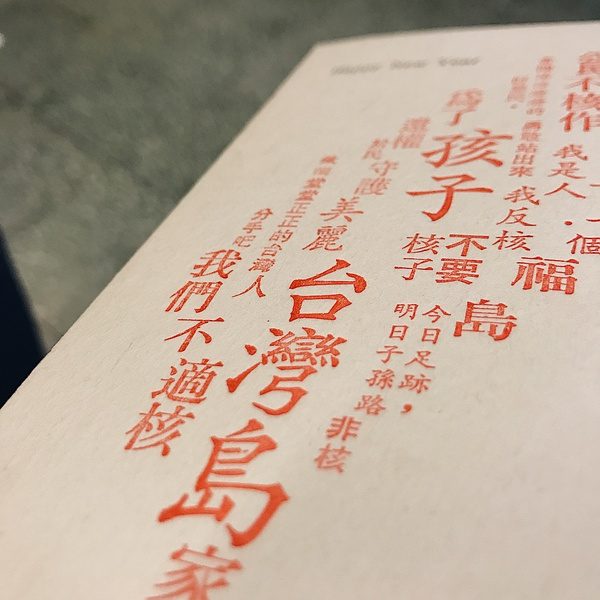 Happy New Year
不核作
個
福島
我是人．我反核
站出來
不要
核子
今日足跡，
明日子孫路
為了孩子
非核
守護美麗台灣島
家
堂堂正正的台灣人
分手吧
我們不適核